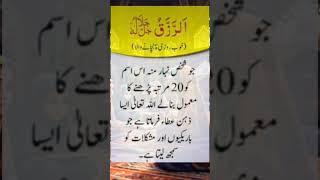 اَلرَّزَّاقُ جل جلالہ
(خوب روزی پہنچانے والا)
جو شخص نہار منہ اس اسم
کو 20 مرتبہ پڑھنے کا
معمول بنالے اللہ تعالیٰ ایسا
ذہن عطاء فرماتا ہے جو
باریکیوں اور مشکلات کو
سمجھ لیتا ہے۔